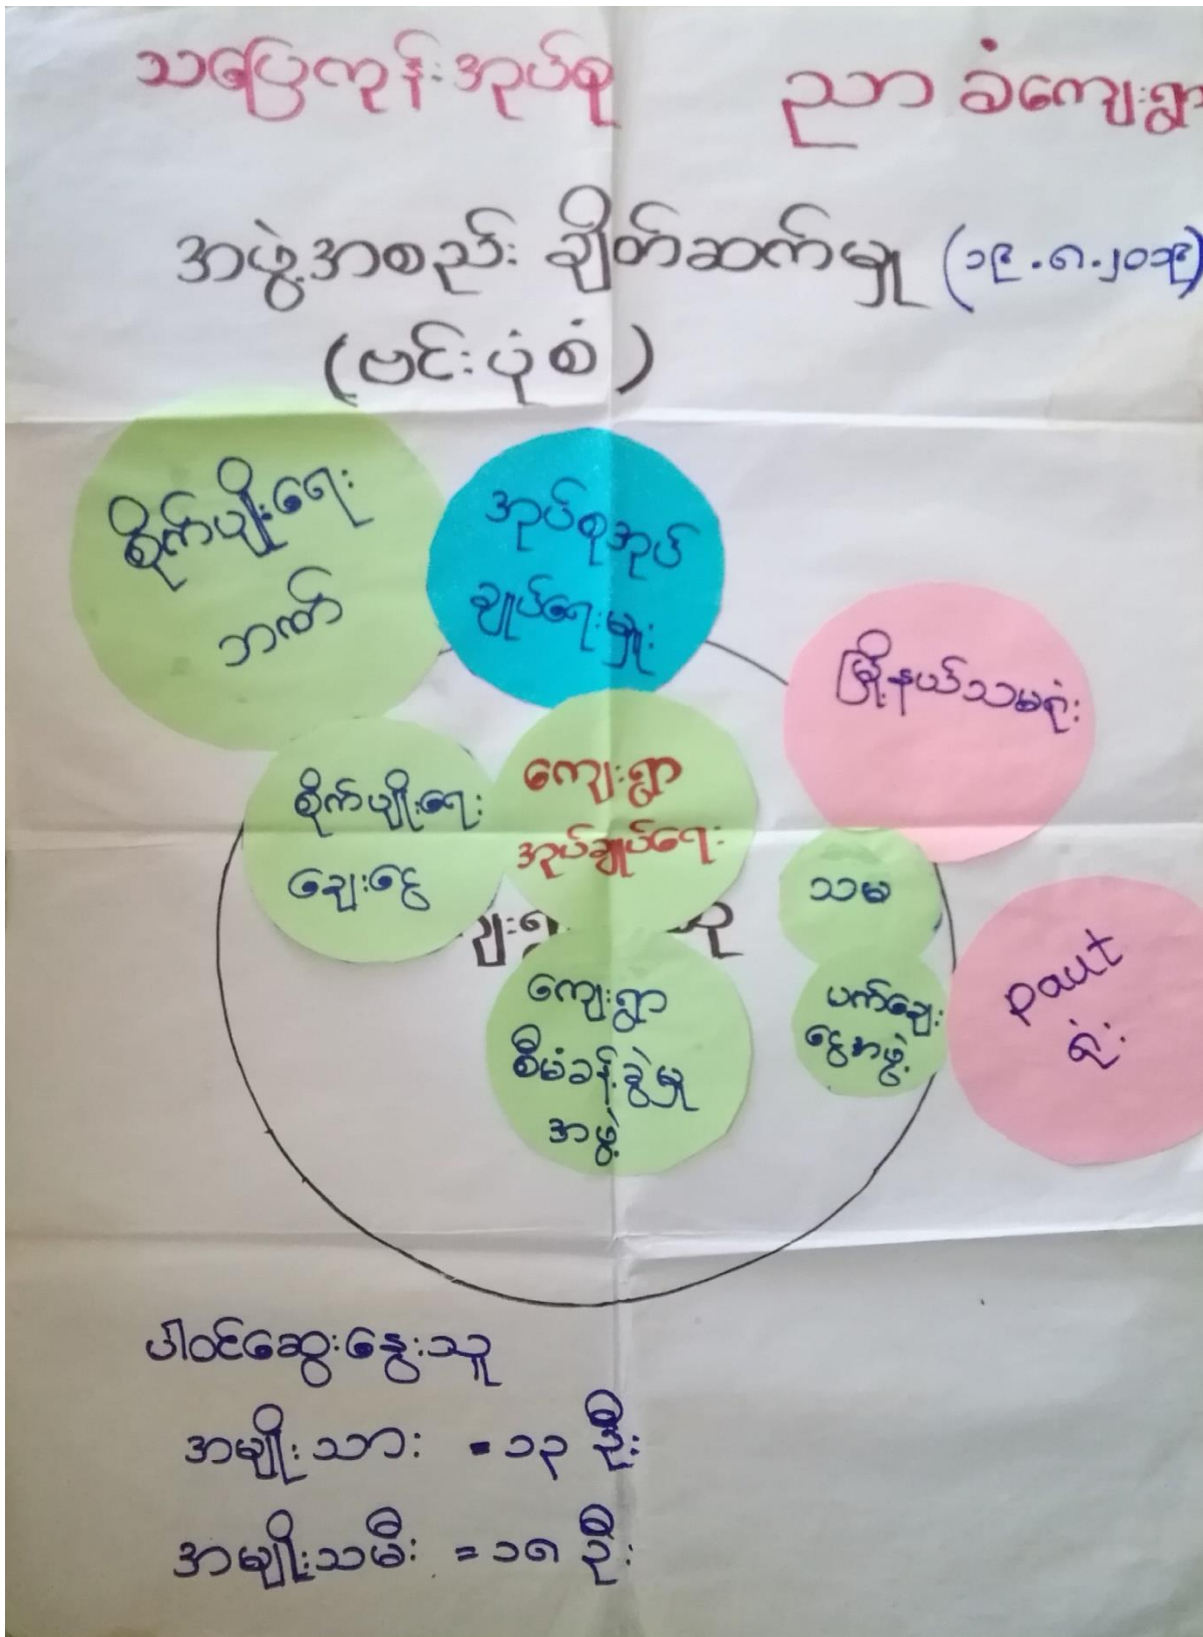 သပြေကုန်းအုပ်စု ညာခံကျေးရွာ
အဖွဲ့အစည်း ချိတ်ဆက်မှု (၁၉.၈.၂၀၁၉)
(ဗင်းပုံစံ)
စိုက်ပျိုးရေး
ဘဏ်
အုပ်စုအုပ်
ချုပ်ရေးမှူး
မြို့နယ်သမရုံး
စိုက်ပျိုးရေး
ချေးငွေ
ကျေးရွာ
အုပ်ချုပ်ရေး
သမ
paut
ရုံး
ကျေးရွာ
စီမံခန့်ခွဲမှု
အဖွဲ့
ပက်ချေး
ငွေအဖွဲ့
ပါဝင်ဆွေးနွေးသူ
အမျိုးသား = ၁၃ ဦး
အမျိုးသမီး = ၁၈ ဦး